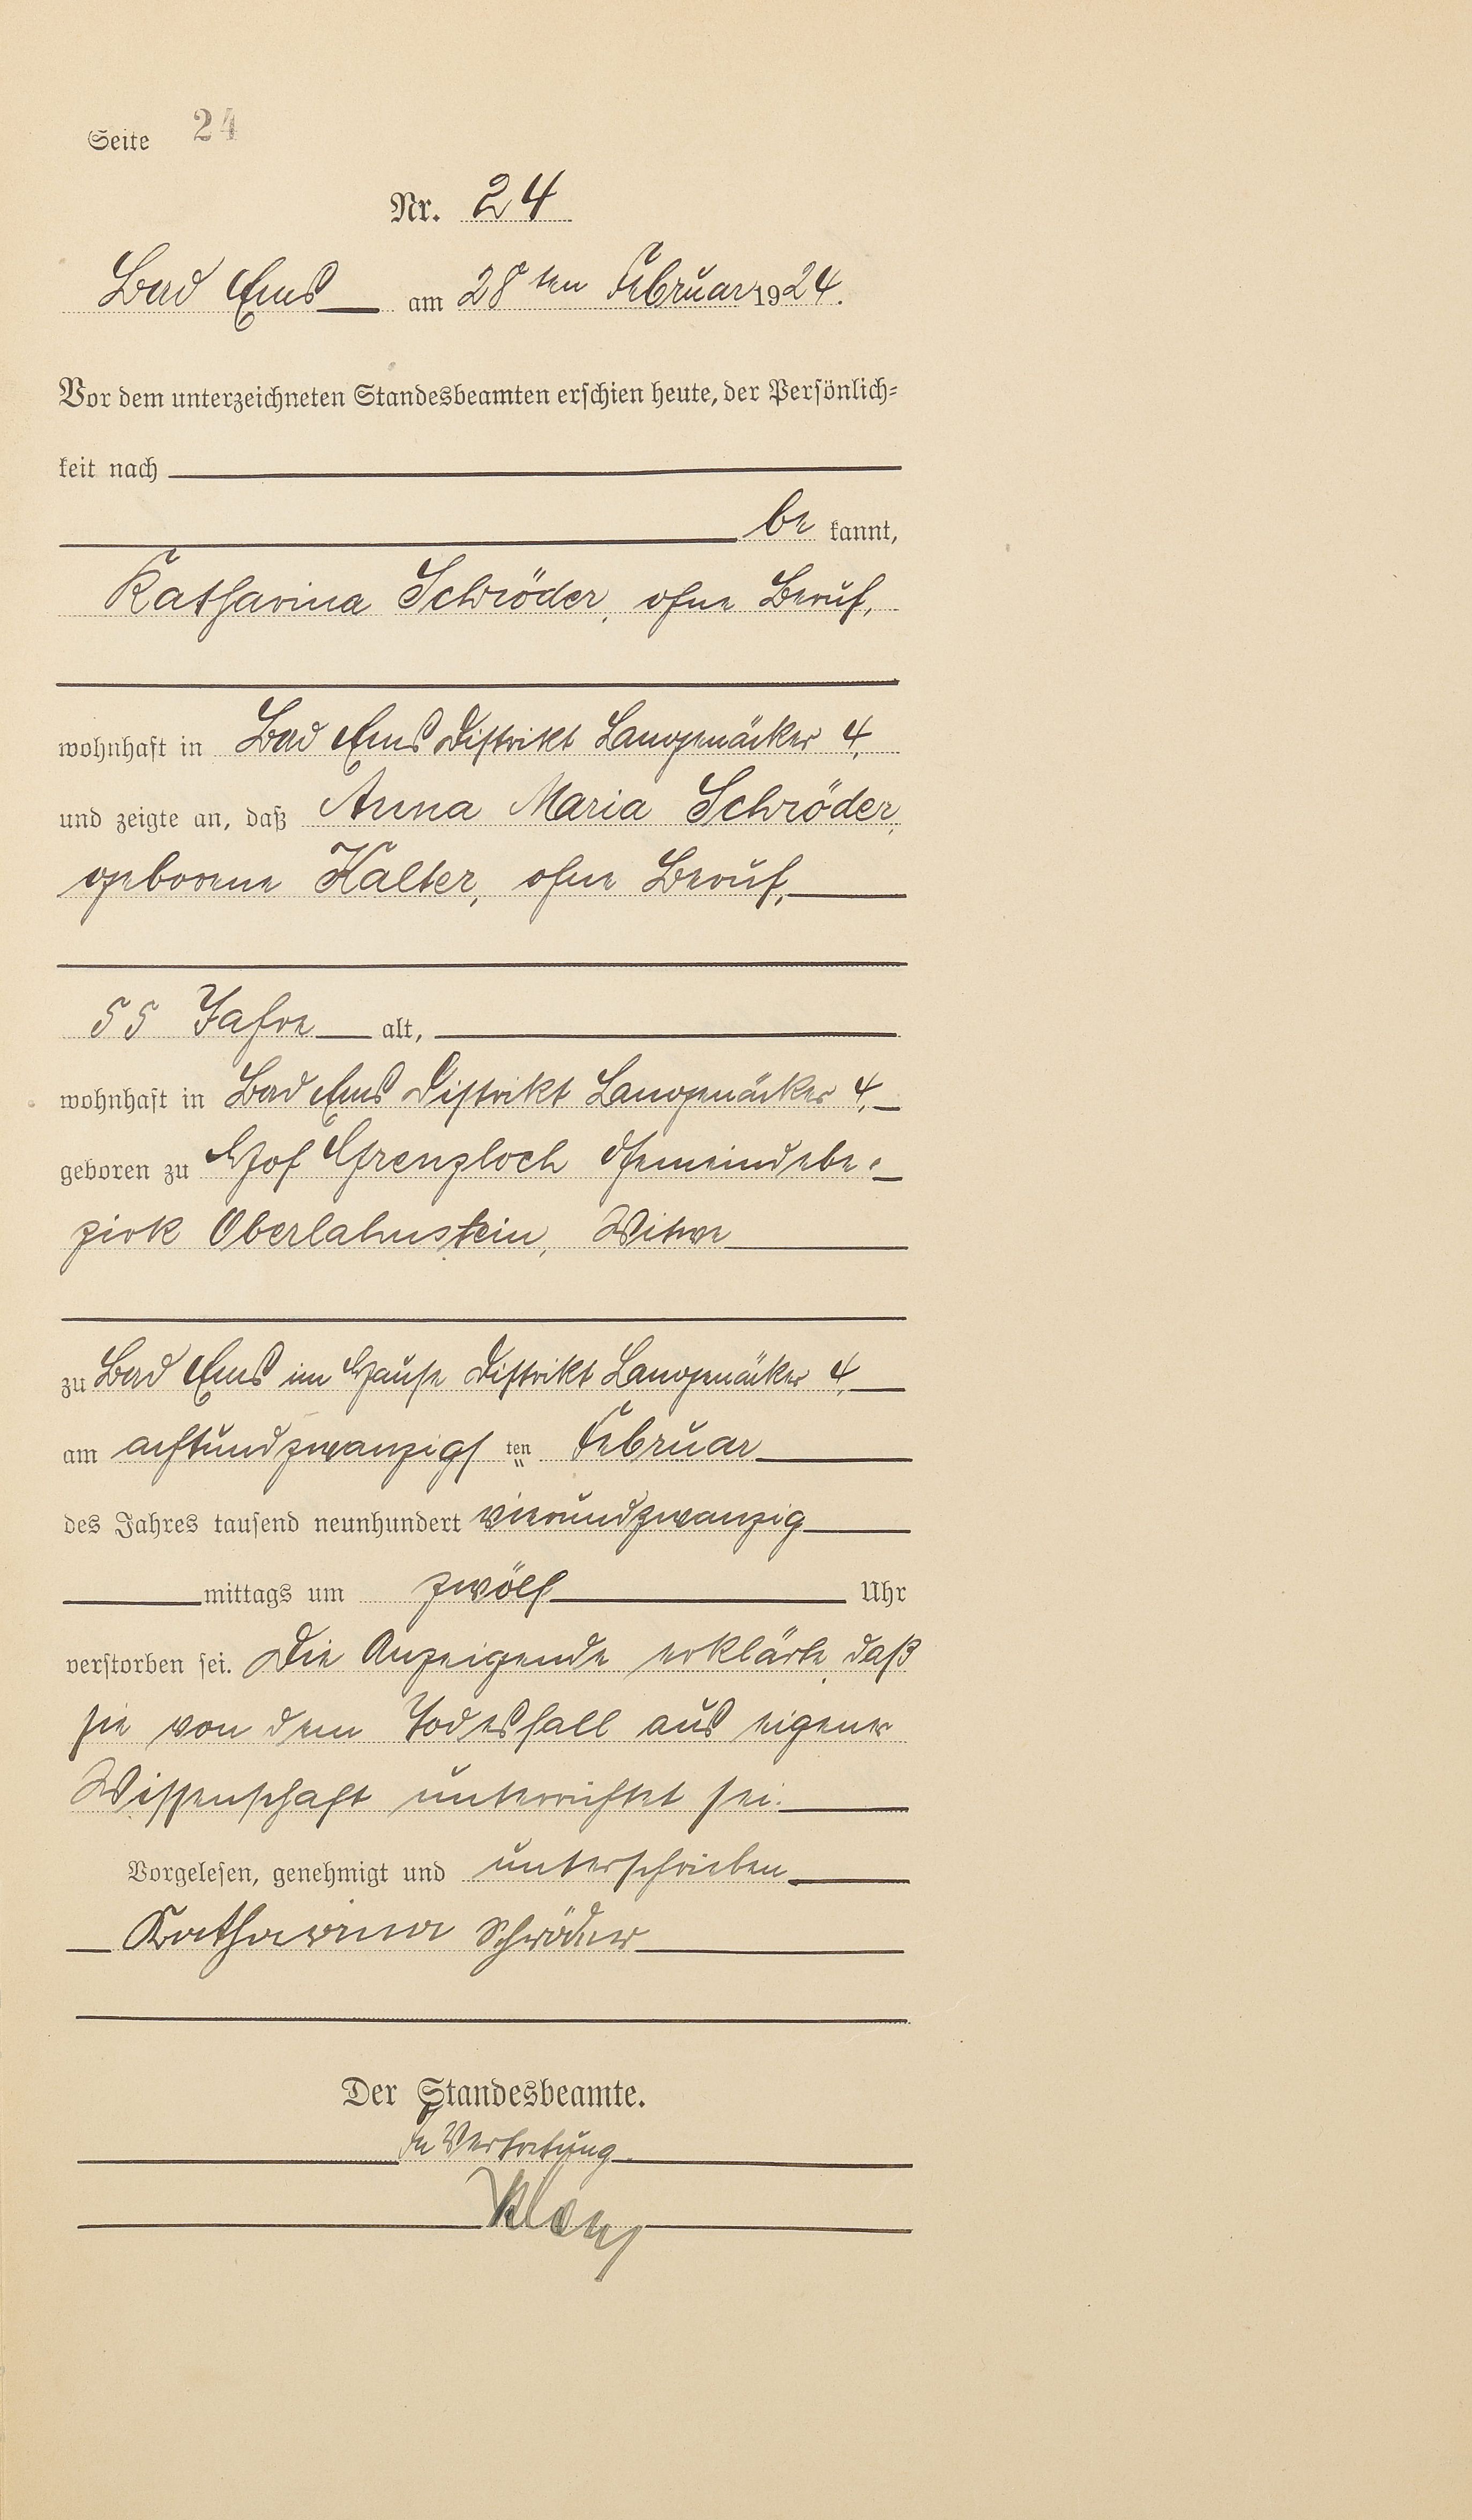 Seite 24
Nr. 24
Bad Ems am 28ten Februar 1924.
Vor dem unterzeichneten Standesbeamten erschien heute, der Persönlich-
keit nach
be kannt,
Katharina Schröder, ohne Beruf,
wohnhaft in Bad Ems Distrikt Langenäcker 4,
und zeigte an, daß Anna Maria Schröder,
geborene Kalter, ohne Beruf,
55 Jahre alt,
wohnhaft in Bad Ems Distrikt Langenäcker 4,
geboren zu Hof Grenzloch Gemeindebe-
zirk Oberlahnstein, Witwe
zu Bad Ems im Hause Distrikt Langenäcker 4,
am achtundzwanzigsten Februar
des Jahres tausend neunhundert vierundzwanzig
mittags um zwölf Uhr
verstorben sei. Die Anzeigende erklärte, daß
sie von dem Todesfall aus eigener
Wissenschaft unterrichtet sei.
Vorgelesen, genehmigt und unterschrieben
Katharina Schröder
Der Standesbeamte.
In Vertretung